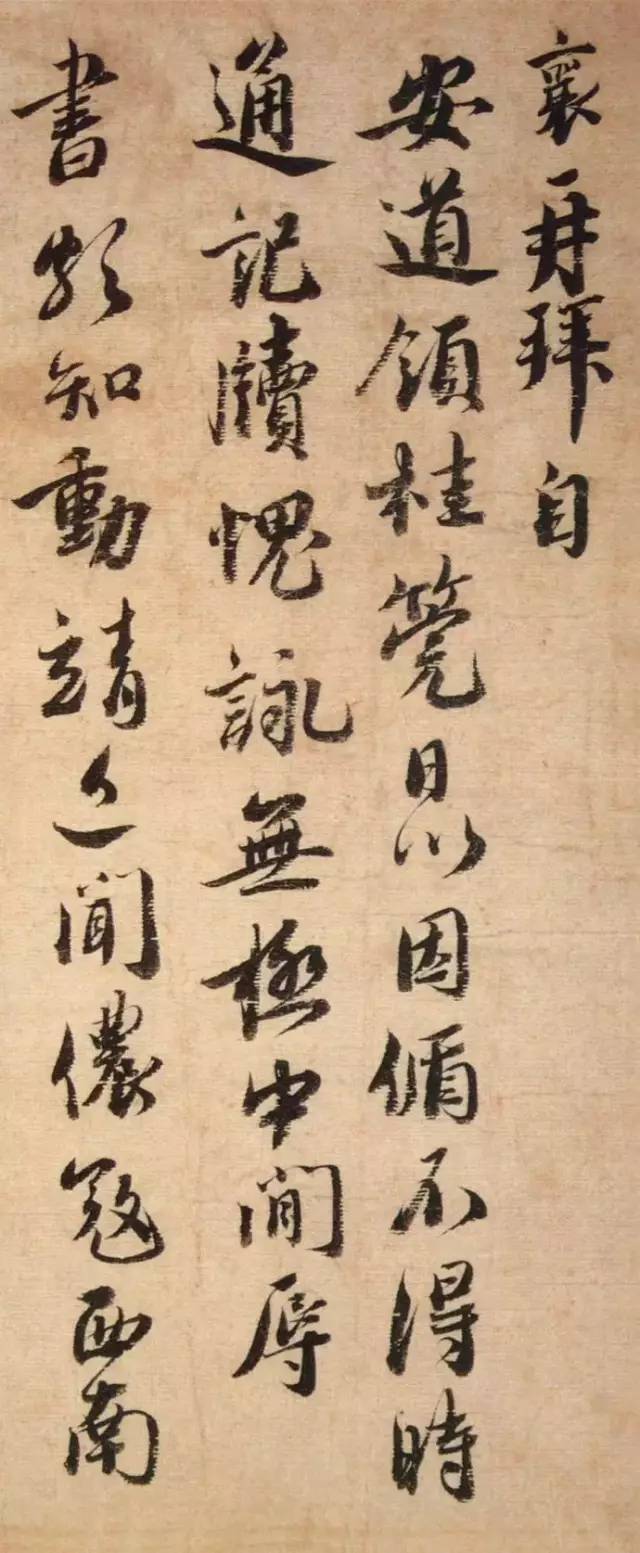 襄再拜自
安道領桂筦日以因循不得時
通記牘愧詠無極中間辱
書頗知動靖近聞儂寇西南